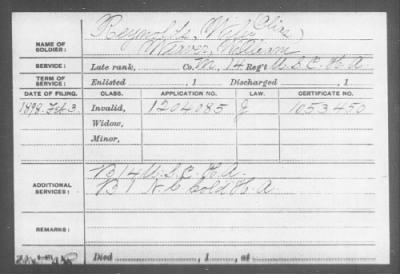 Reynolds, Wiley Cline
NAME OF SOLDIER: Weaver, William
SERVICE: Late rank, Co. M, 14 Reg't U. S. C. H A.
TERM OF SERVICE: Enlisted , 1 Discharged , 1
DATE OF FILING. CLASS. APPLICATION NO. LAW. CERTIFICATE NO.
1898, Feb 3. Invalid, 1204085 G 1053450
Widow,
Minor,
ADDITIONAL SERVICES: B 14 U. S. C. H. A.
B 1 N. C. Cold H. A
REMARKS:
Died , 1 , at